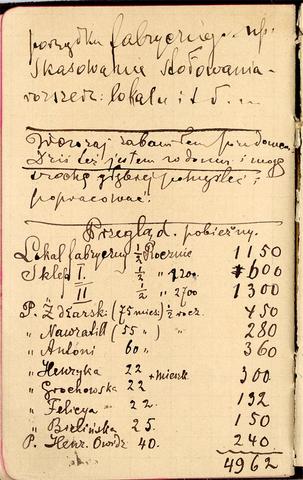 porządku fabrycznego. np.
Skasowanie stołowania –
rozszerz: lokalu i t d ...
Wczoraj zabawiłem poza domem
Dziś też jestem w domu i mogę
trochę głębiej pomyśleć i
popracować.
Przegląd. pobieżny.
Lokal fabryczny ½ Rocznie 1150
Sklep I. ½ „ 1200 600
„ II ½ „ 2700 1300
P. Zdżarski (75 mies) ½ rocz. 450
„ Nawratill (55 „) „ 280
„ Antoni 60 „ 360
„ Henryka 22 + mieszk 300
„ Grochowska 22
„ Felicya „ 22. 132
„ Bielińska 25. 150
P. Henr. Owidz 40. 240
4962